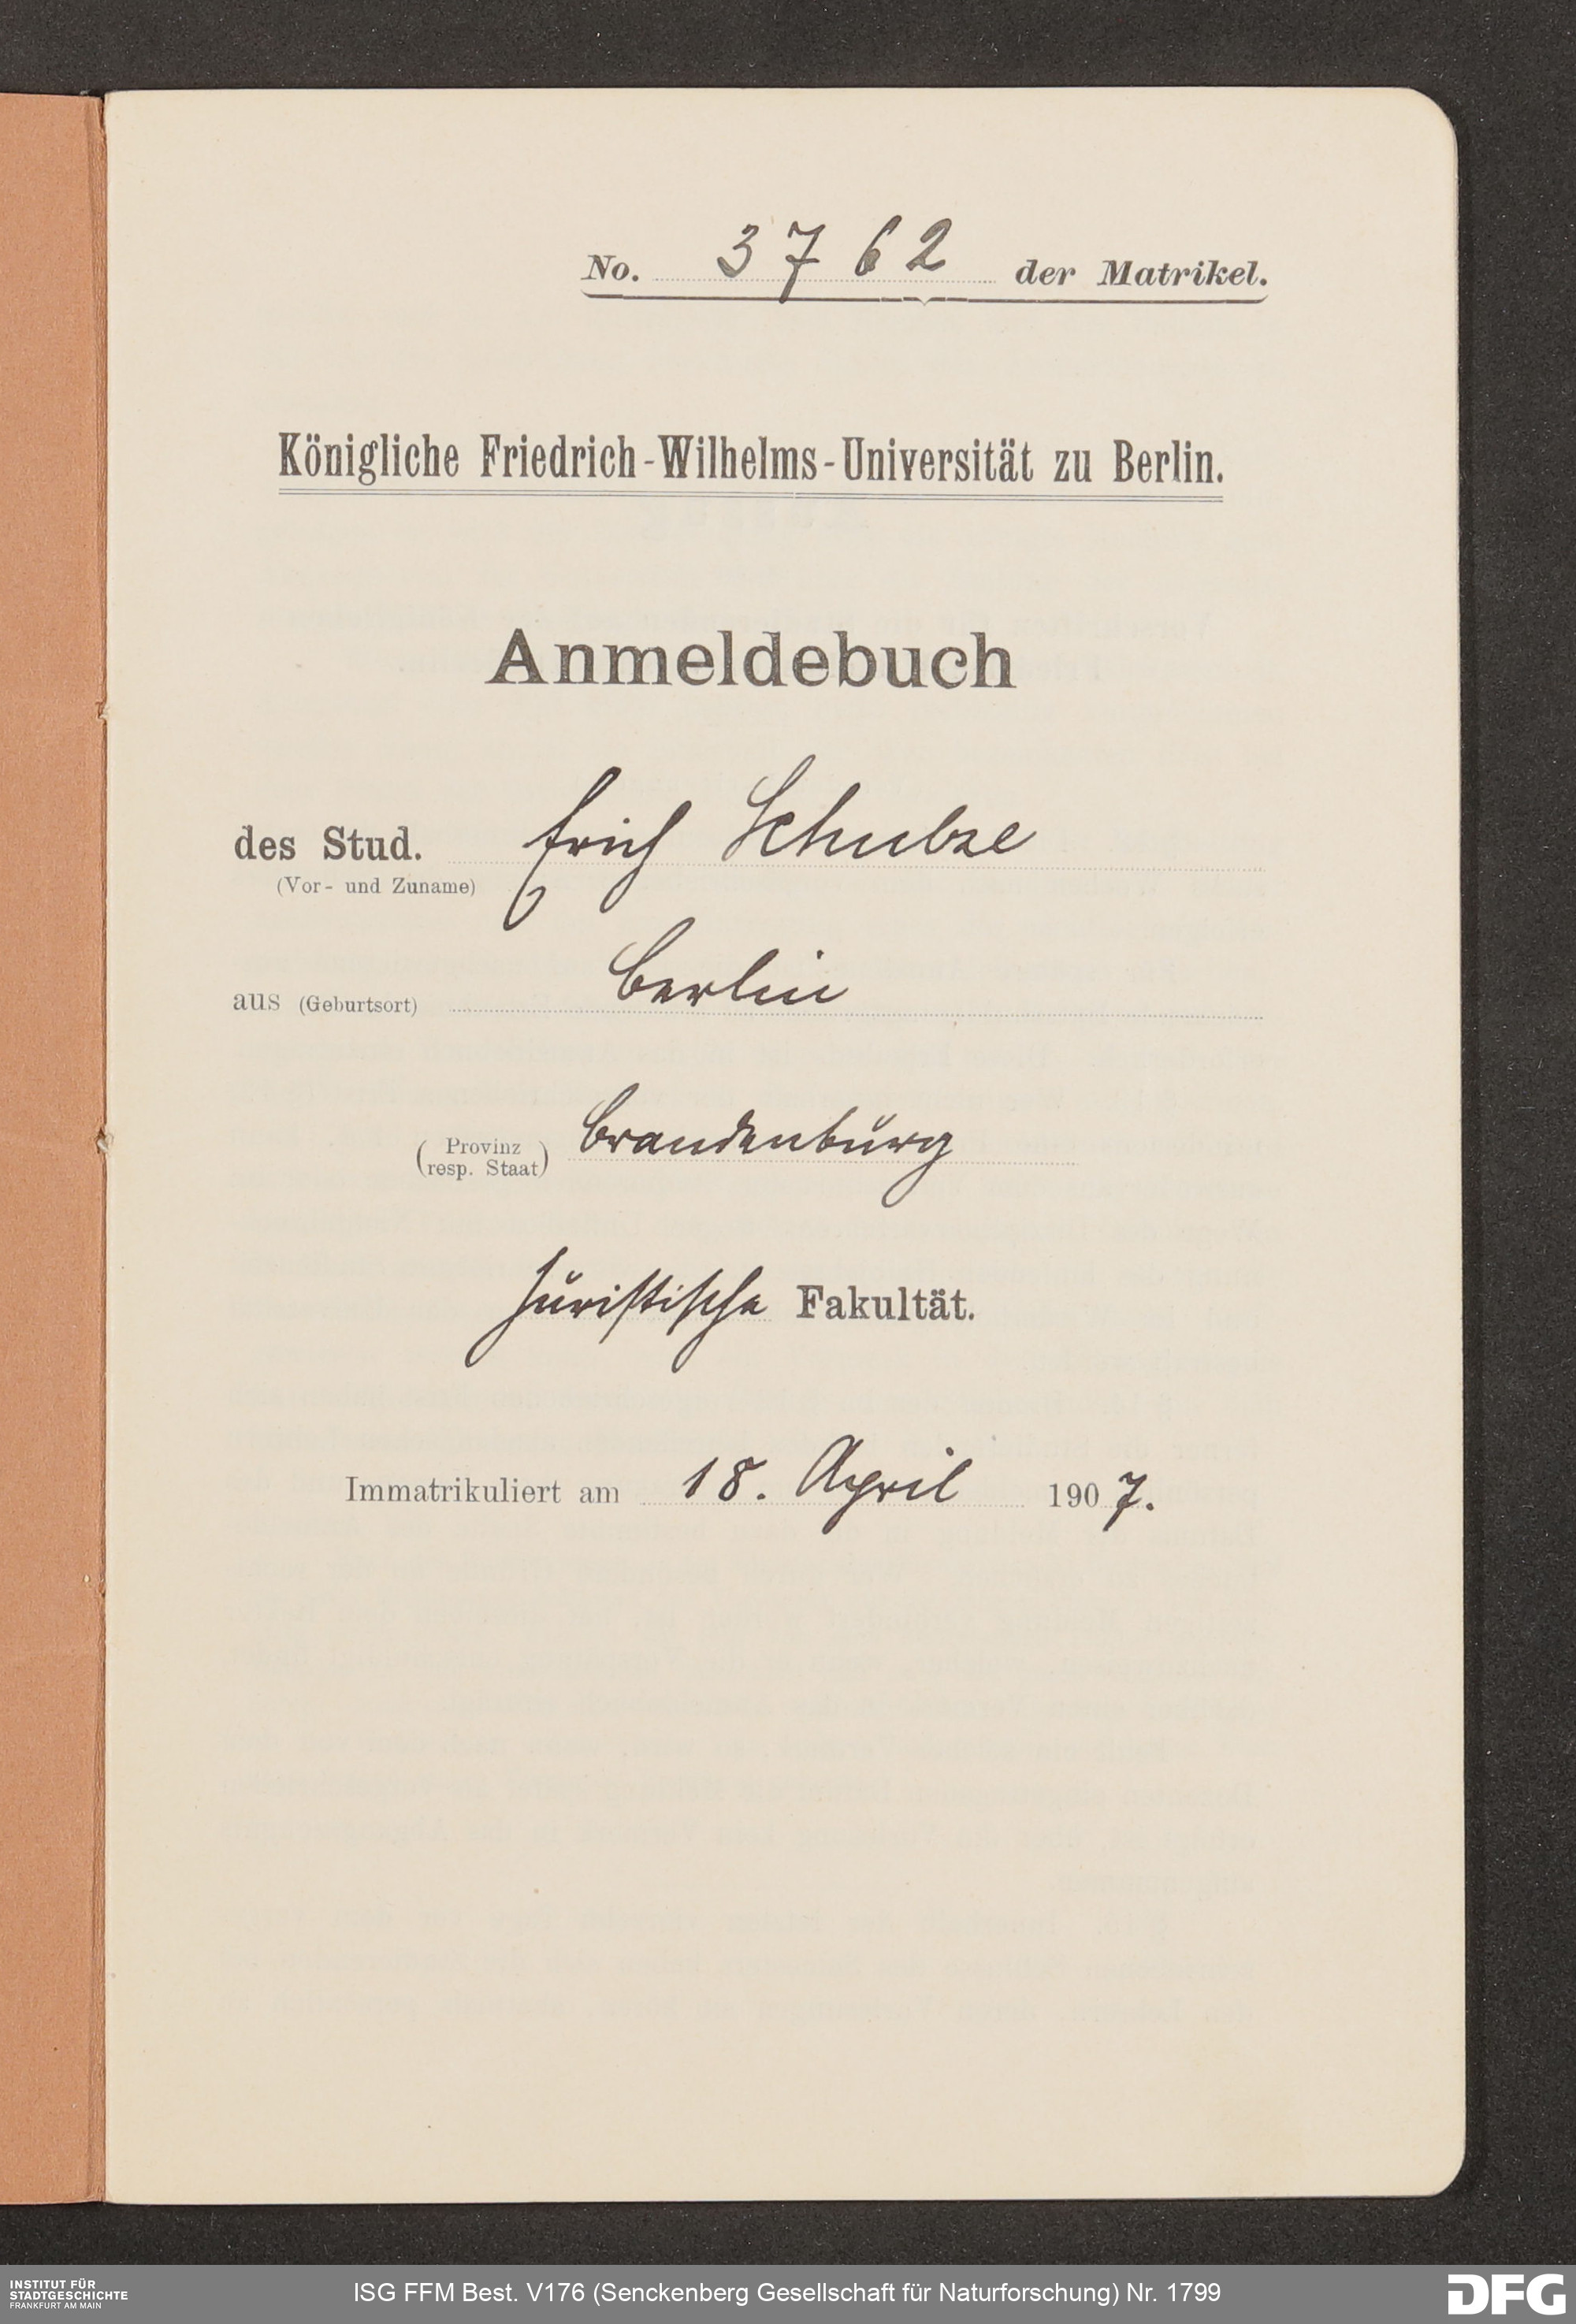 No. 3762 der Matrikel.
Königliche Friedrich-Wilhelms-Universität zu Berlin.
Anmeldebuch
des Stud. Erich Schulze
(Vor- und Zuname)
aus (Geburtsort) Berlin
(Provinz resp. Staat) Brandenburg
Juristische Fakultät.
Immatrikuliert am 18. April 1907.
INSTITUT FÜR
STADTGESCHICHTE
FRANKFURT AM MAIN
ISG FFM Best. V176 (Senckenberg Gesellschaft für Naturforschung) Nr. 1799
DFG